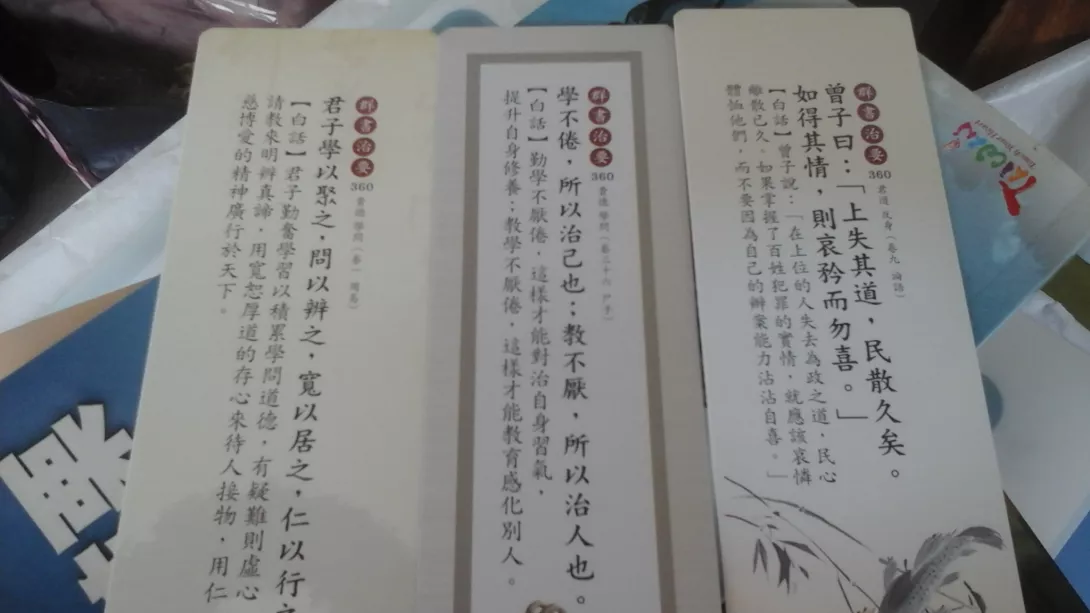 群書治要
360
君道 反身（卷九 論語）
曾子曰：「上失其道，民散久矣。
如得其情，則哀矜而勿喜。」
【白話】曾子說：「在上位的人失去為政之道，民心
離散已久。如果掌握了百姓犯罪的實情，就應該哀憐
體恤他們，而不要因為自己的辦案能力沾沾自喜。」
群書治要
360
貴德 學問（卷三十六 尸子）
學不倦，所以治己也；教不厭，所以治人也。
【白話】勤學不厭倦，這樣才能對治自身習氣，
提升自身修養；教學不厭倦，這樣才能教育感化別人。
群書治要
360
貴德 學問（卷一 周易）
君子學以聚之，問以辨之，寬以居之，仁以行之
【白話】君子勤奮學習以積累學問道德，有疑難則虛心
請教來明辨真諦，用寬恕厚道的存心來待人接物，用仁
慈博愛的精神廣行於天下。
Touch Your Heart